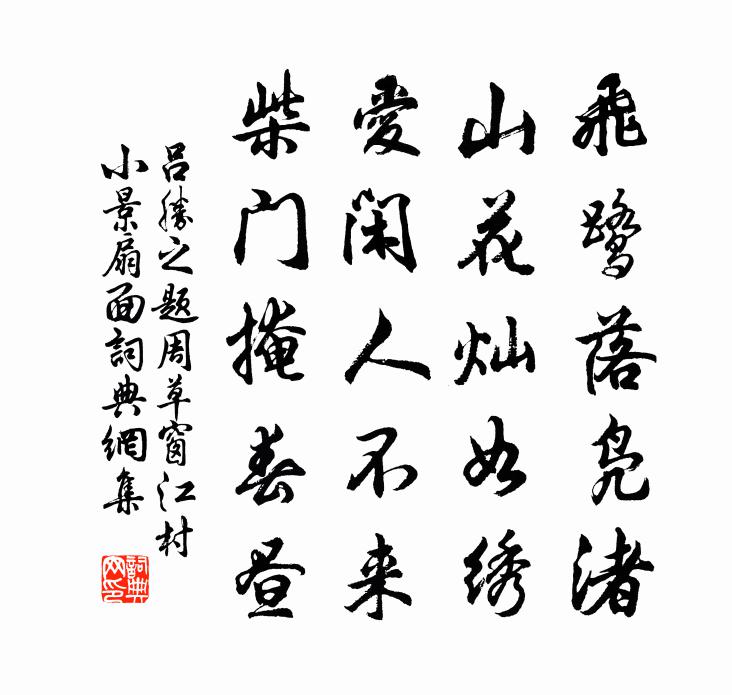 飛鹭落凫渚
山花灿如绣
愛闲人不来
柴门掩春昼
吕勝之题周草窗江村
小景扇面詞典網集
詞典
网印